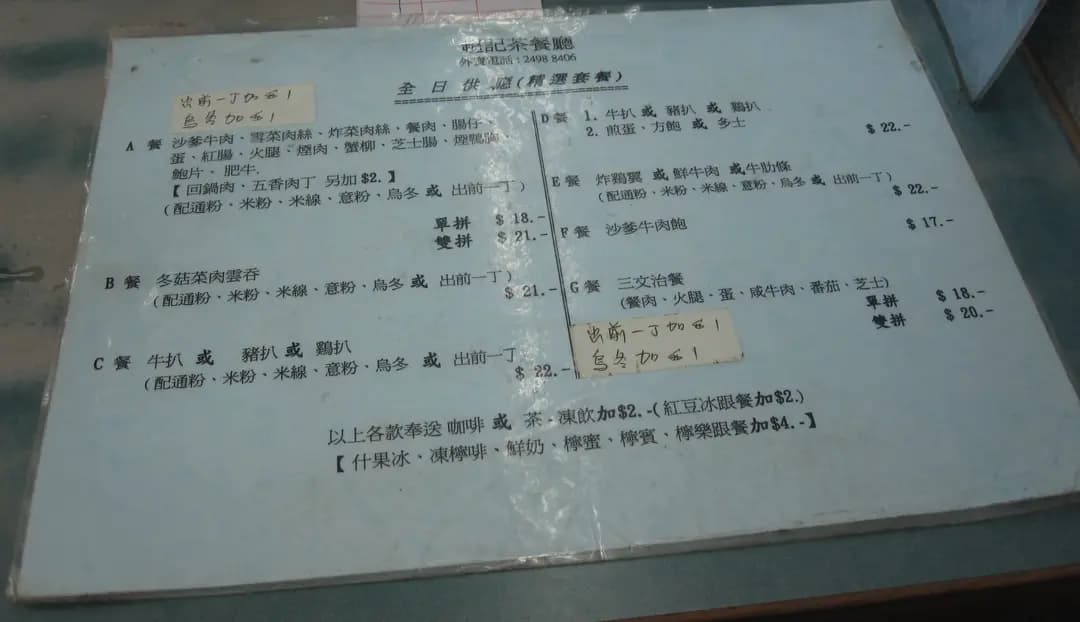 記茶餐廳
外賣電話：2498 8406
全日供應(精選套餐)
出前一丁加$1
烏冬加$1
A 餐 沙爹牛肉、雪菜肉絲、炸菜肉絲、餐肉、腸仔、
蛋、紅腸、火腿、煙肉、蟹柳、芝士腸、煙鴨胸、
鮑片、肥牛.
【回鍋肉、五香肉丁 另加$2.】
(配通粉、米粉、米線、意粉、烏冬 或 出前一丁)
單拼 $ 18.-
雙拼 $ 21.-
B 餐 冬菇菜肉雲吞
(配通粉、米粉、米線、意粉、烏冬 或 出前一丁)
$ 21.-
C 餐 牛扒 或 豬扒 或 鷄扒
(配通粉、米粉、米線、意粉、烏冬 或 出前一丁
$ 22.-
D 餐 1. 牛扒 或 豬扒 或 鷄扒
2. 煎蛋、方飽 或 多士
$ 22.-
E 餐 炸鷄翼 或 鮮牛肉 或牛肋條
(配通粉、米粉、米線、意粉、烏冬 或 出前一丁)
$ 22.-
F 餐 沙爹牛肉飽
$ 17.-
G 餐 三文治餐
(餐肉、火腿、蛋、咸牛肉、番茄、芝士)
單拼 $ 18.-
雙拼 $ 20.-
出前一丁加$1
烏冬加$1
以上各款奉送 咖啡 或 茶，凍飲加$2.-(紅豆冰跟餐加$2.)
【什果冰、凍檸啡、鮮奶、檸蜜、檸賓、檸樂跟餐加$4.-】